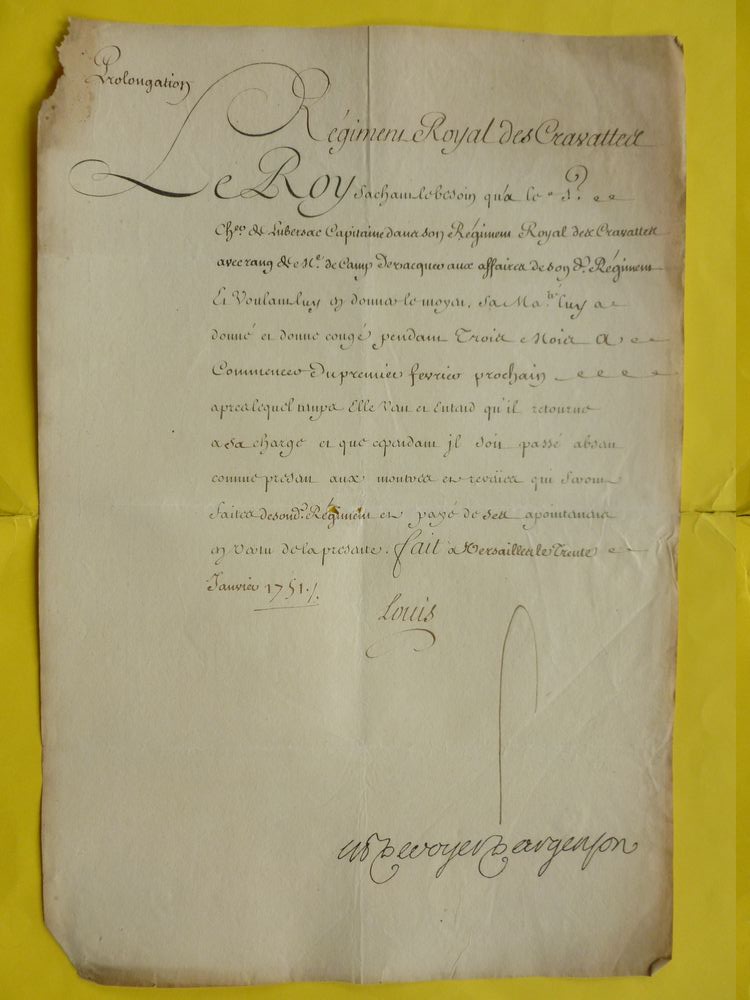 Prolongation
Régiment Royal des Cravattes
Le Roy sachant le besoin qu'a le S.r
Ch.er de Lubersac Capitaine dans son Régiment Royal des Cravattes
avec rang de M.e de Camp de vacquer aux affaires de son d. Régiment
Et Voulant luy en donner le moyen, Sa Ma.té luy a
donné et donne congé pendant Trois Mois A
Commencer Du premier fevrier prochain
apres lequel temps Elle Veut et Entend qu'il retourne
a sa charge et que cependant jl soit passé absent
comme present aux montres et reveües qui seront
faites de sond. Régiment et payé de ses apointemens
en vertu de la presente. fait a Versailles le Trente
Janvier 1751./.
Louis
De voyer D argenson